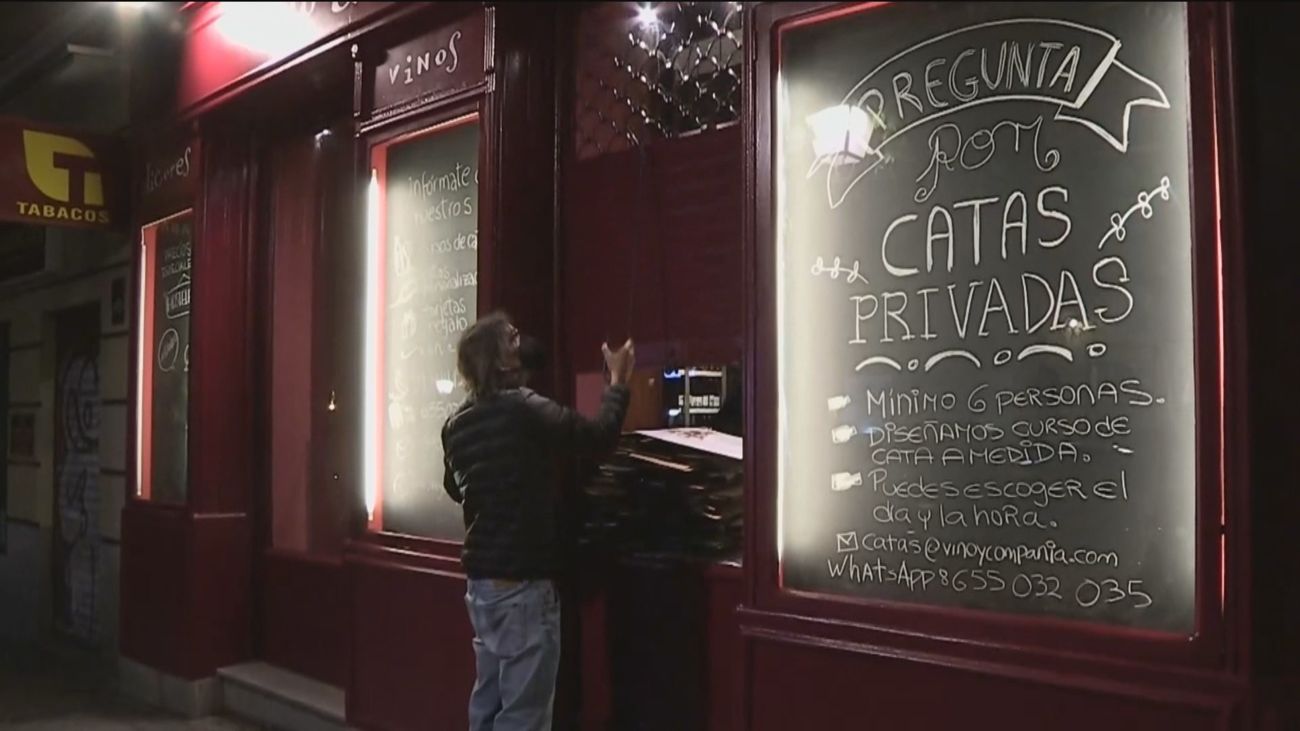 VINOS
T
TABACOS
licores
PRECIOS
ESPECIALES
Infórmate
nuestros
tarjetas
regalo
PREGUNTA
POR
CATAS
PRIVADAS
MÍNIMO 6 PERSONAS.
DISEÑAMOS CURSO DE
CATA A MEDIDA.
PUEDES ESCOGER El
día y la hora.
catas@vinoycompania.com
WhatsApp: 655 032 035